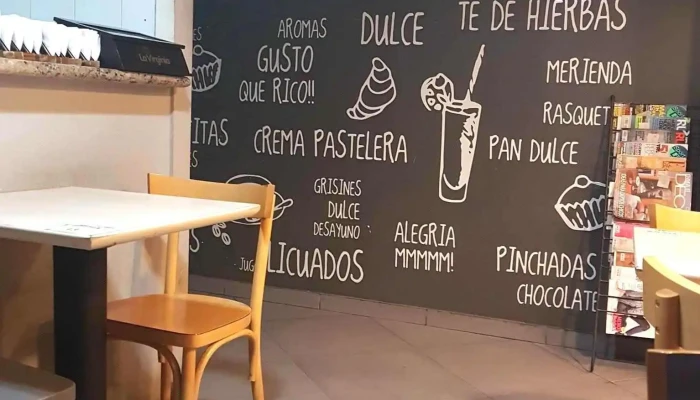 AROMAS
DULCE
TE DE HIERBAS
GUSTO
QUE RICO!!
MERIENDA
RASQUET
CREMA PASTELERA
PAN DULCE
GRISINES
DULCE
DESAYUNO
ALEGRIA
MMMMM!
LICUADOS
PINCHADAS
CHOCOLATE
La Virginia